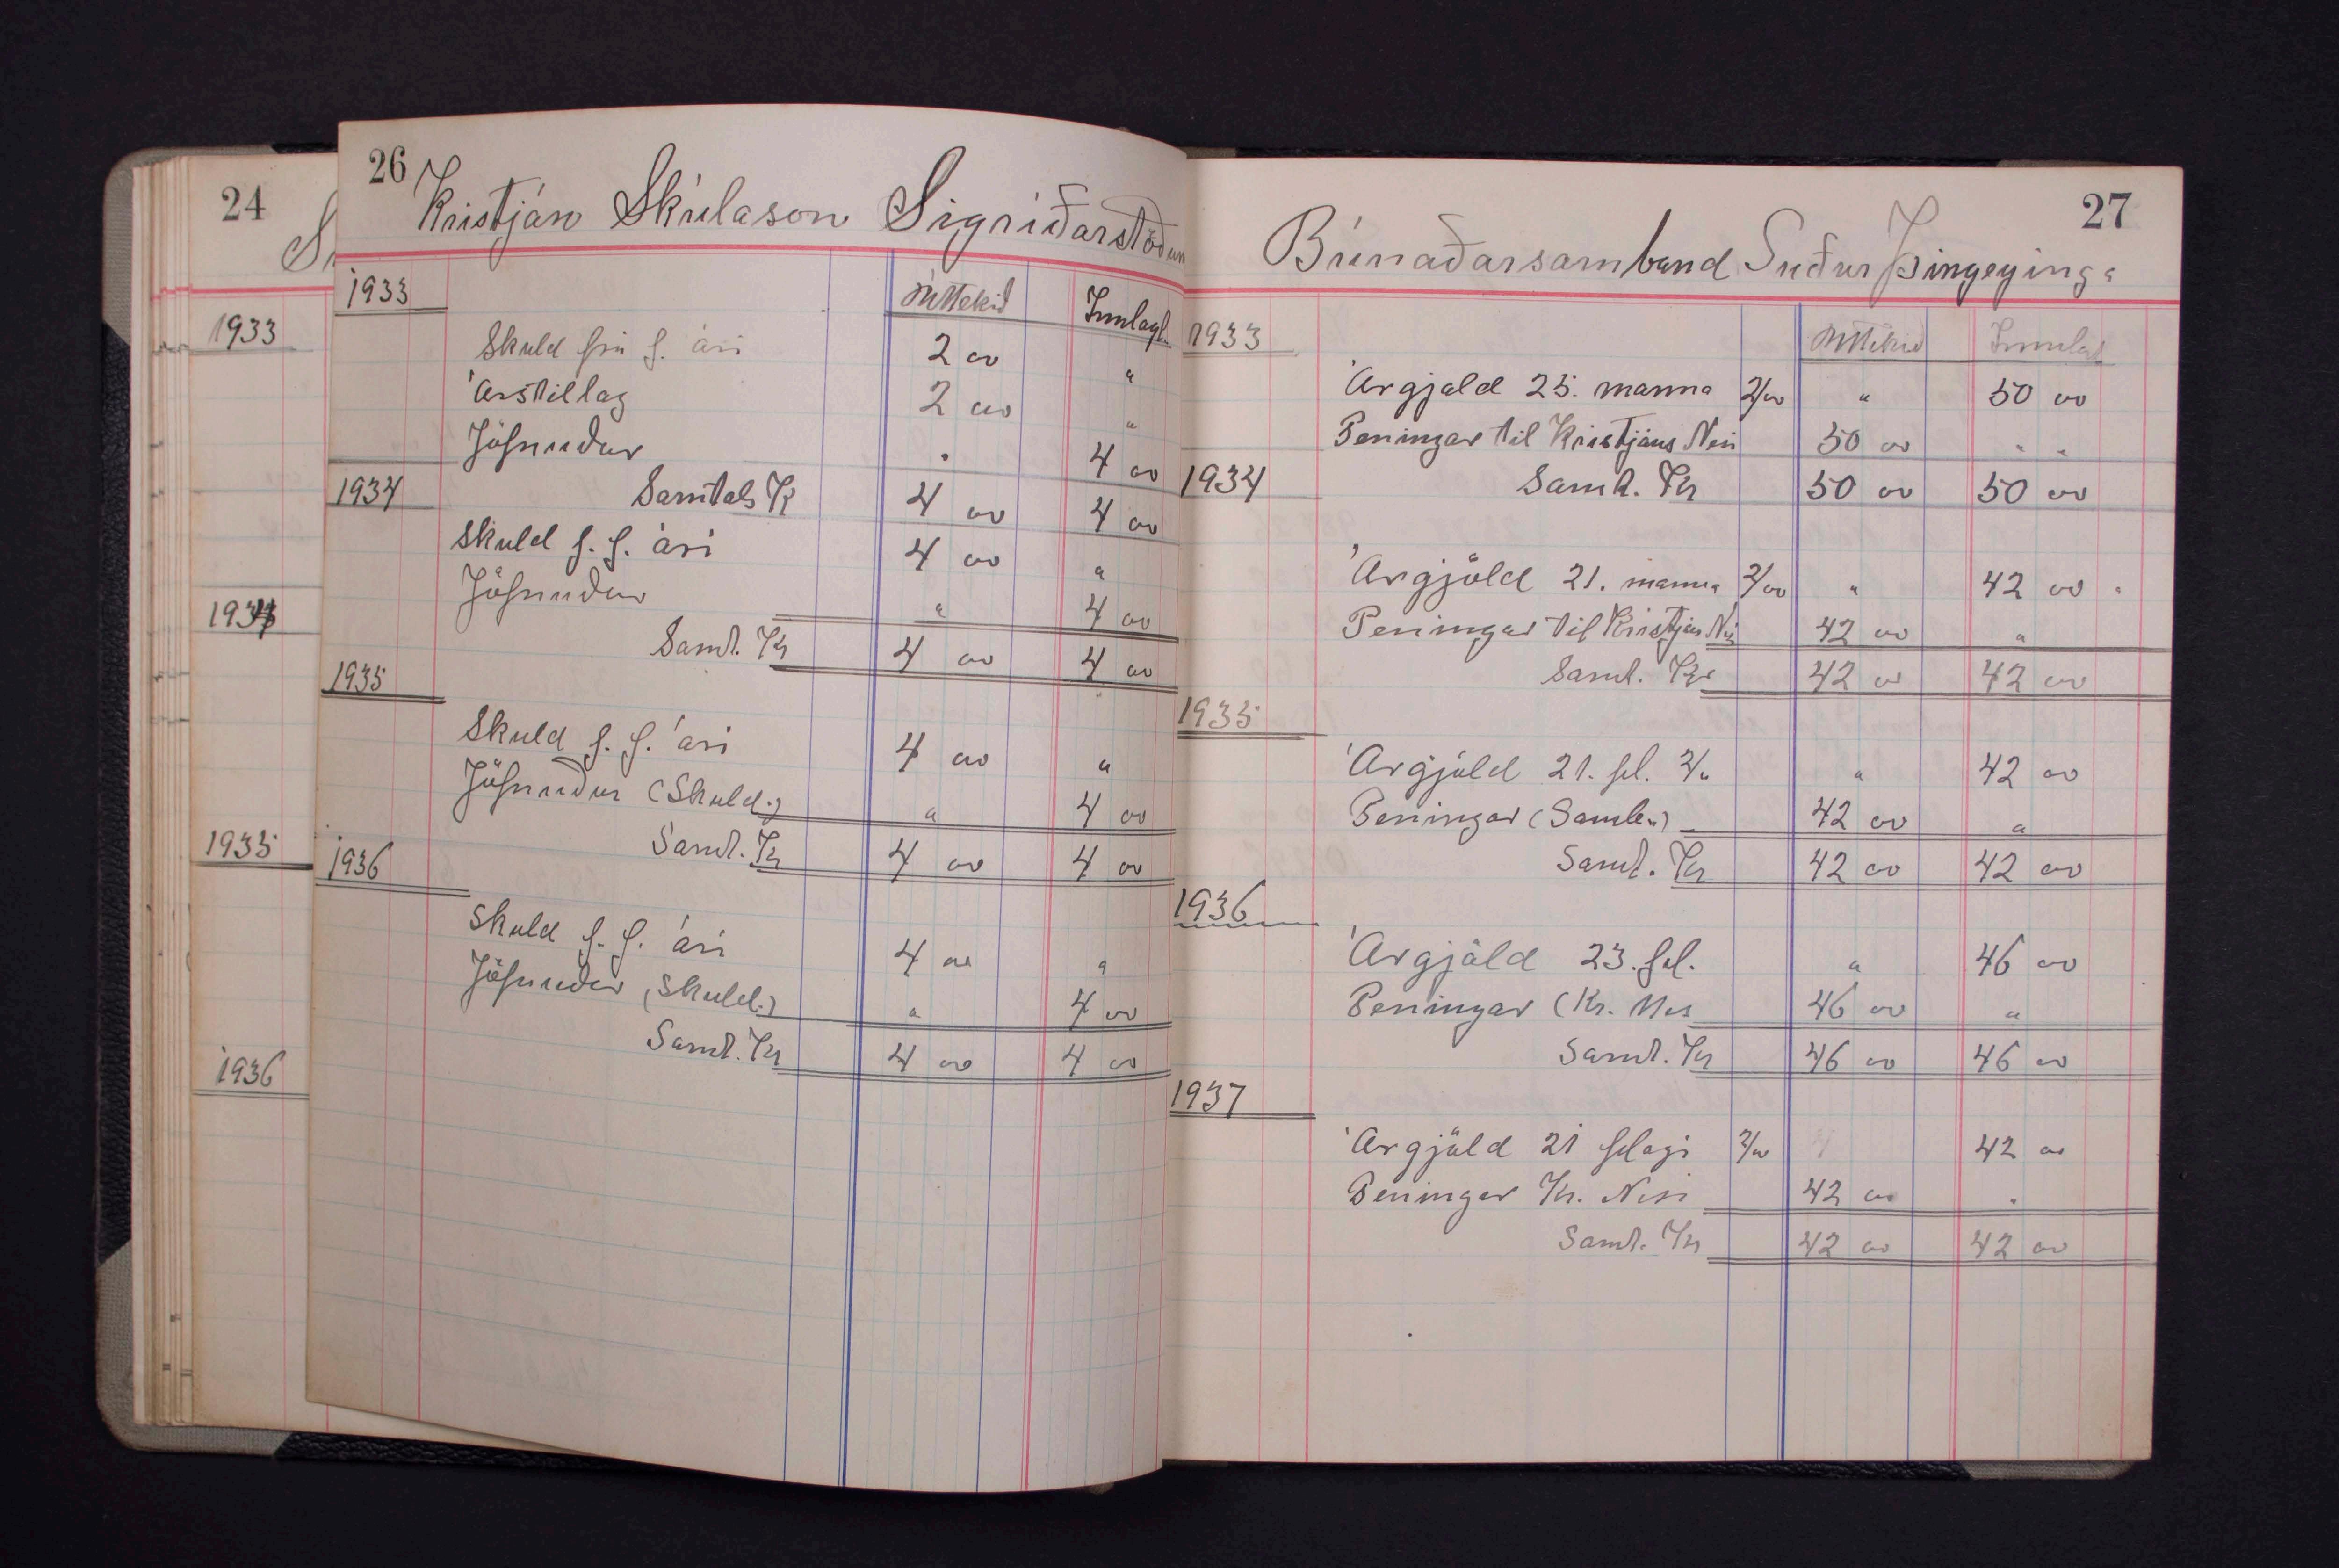 24
1933
1934
1935
1936
26
Kristján Skúlason Sigríðarstöðum
1933
Úttekið Innlagt
Skuld frá f. ári 2 00 "
Árstillag 2 00 "
Jöfnuður " 4 00
1934 Samtals Kr 4 00 4 00
Skuld f. f. ári 4 00 "
Jöfnuður " 4 00
Samt. Kr 4 00 4 00
1935
Skuld f. f. ári 4 00 "
Jöfnuður (Skuld.) " 4 00
Samt. Kr 4 00 4 00
1936
Skuld f. f. ári 4 00 "
Jöfnuður (Skuld.) " 4 00
Samt. Kr 4 00 4 00
27
Búnaðarsamband Suður Þingeyinga
1933
Úttekið Innlagt
Árgjald 25. manna 2/00 " 50 00
Peningar til Kristjáns Nesi 50 00 " "
1934 Samt. Kr 50 00 50 00
Árgjöld 21. manna 2/00 " 42 00
Peningar til Kristján 42 00 "
Samt. Kr 42 00 42 00
1935
Árgjöld 21. fél. 2/" " 42 00
Peningar 42 00 "
Samt. Kr 42 00 42 00
1936
Árgjöld 23. fél. " 46 00
Peningar (Kr. Nes 46 00 "
Samt. Kr 46 00 46 00
1937
Árgjöld 21 félagi 2/00 42 00
Peningar Kr. Nesi 42 00 "
Samt. Kr 42 00 42 00